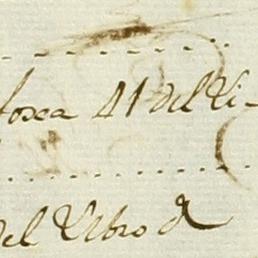 foxa 41 del Li-
del Libro d